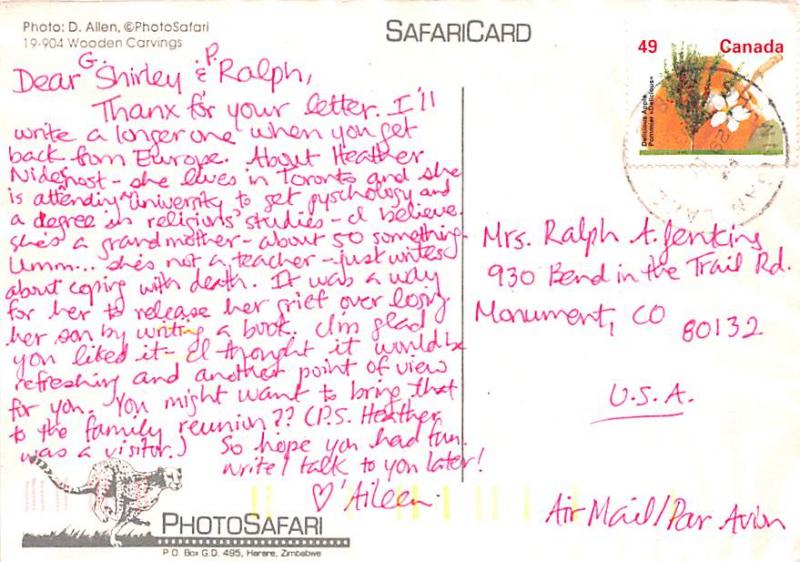 Photo: D. Allen, ©PhotoSafari
19-904 Wooden Carvings
SAFARICARD
49 Canada
Delicious Apple
Pommier «Delicious»
G. P.
Dear Shirley & Ralph,
Thanx for your letter. I'll
write a longer one when you get
back from Europe. About Heather
- she lives in Toronto and she
is attending University to get pyschology and
a degree in religious studies - I believe.
she's a grandmother - about 50 something.
Umm... she's not a teacher - just writes
about coping with death. It was a way
for her to release her grief over losing
her son by writing a book. I'm glad
you liked it - I thought it would be
refreshing and another point of view
for you. You might want to bring that
to the family reunion?? (P.S. Heather
was a visitor.) So hope you had fun.
Write! talk to you later!
♡ 'Aileen.
Mrs. Ralph A. Jenkins
930 Bend in the Trail Rd.
Monument, CO
80132
U.S.A.
Air Mail/Par Avion
PHOTOSAFARI
P.O. Box G.D. 495, Harare, Zimbabwe